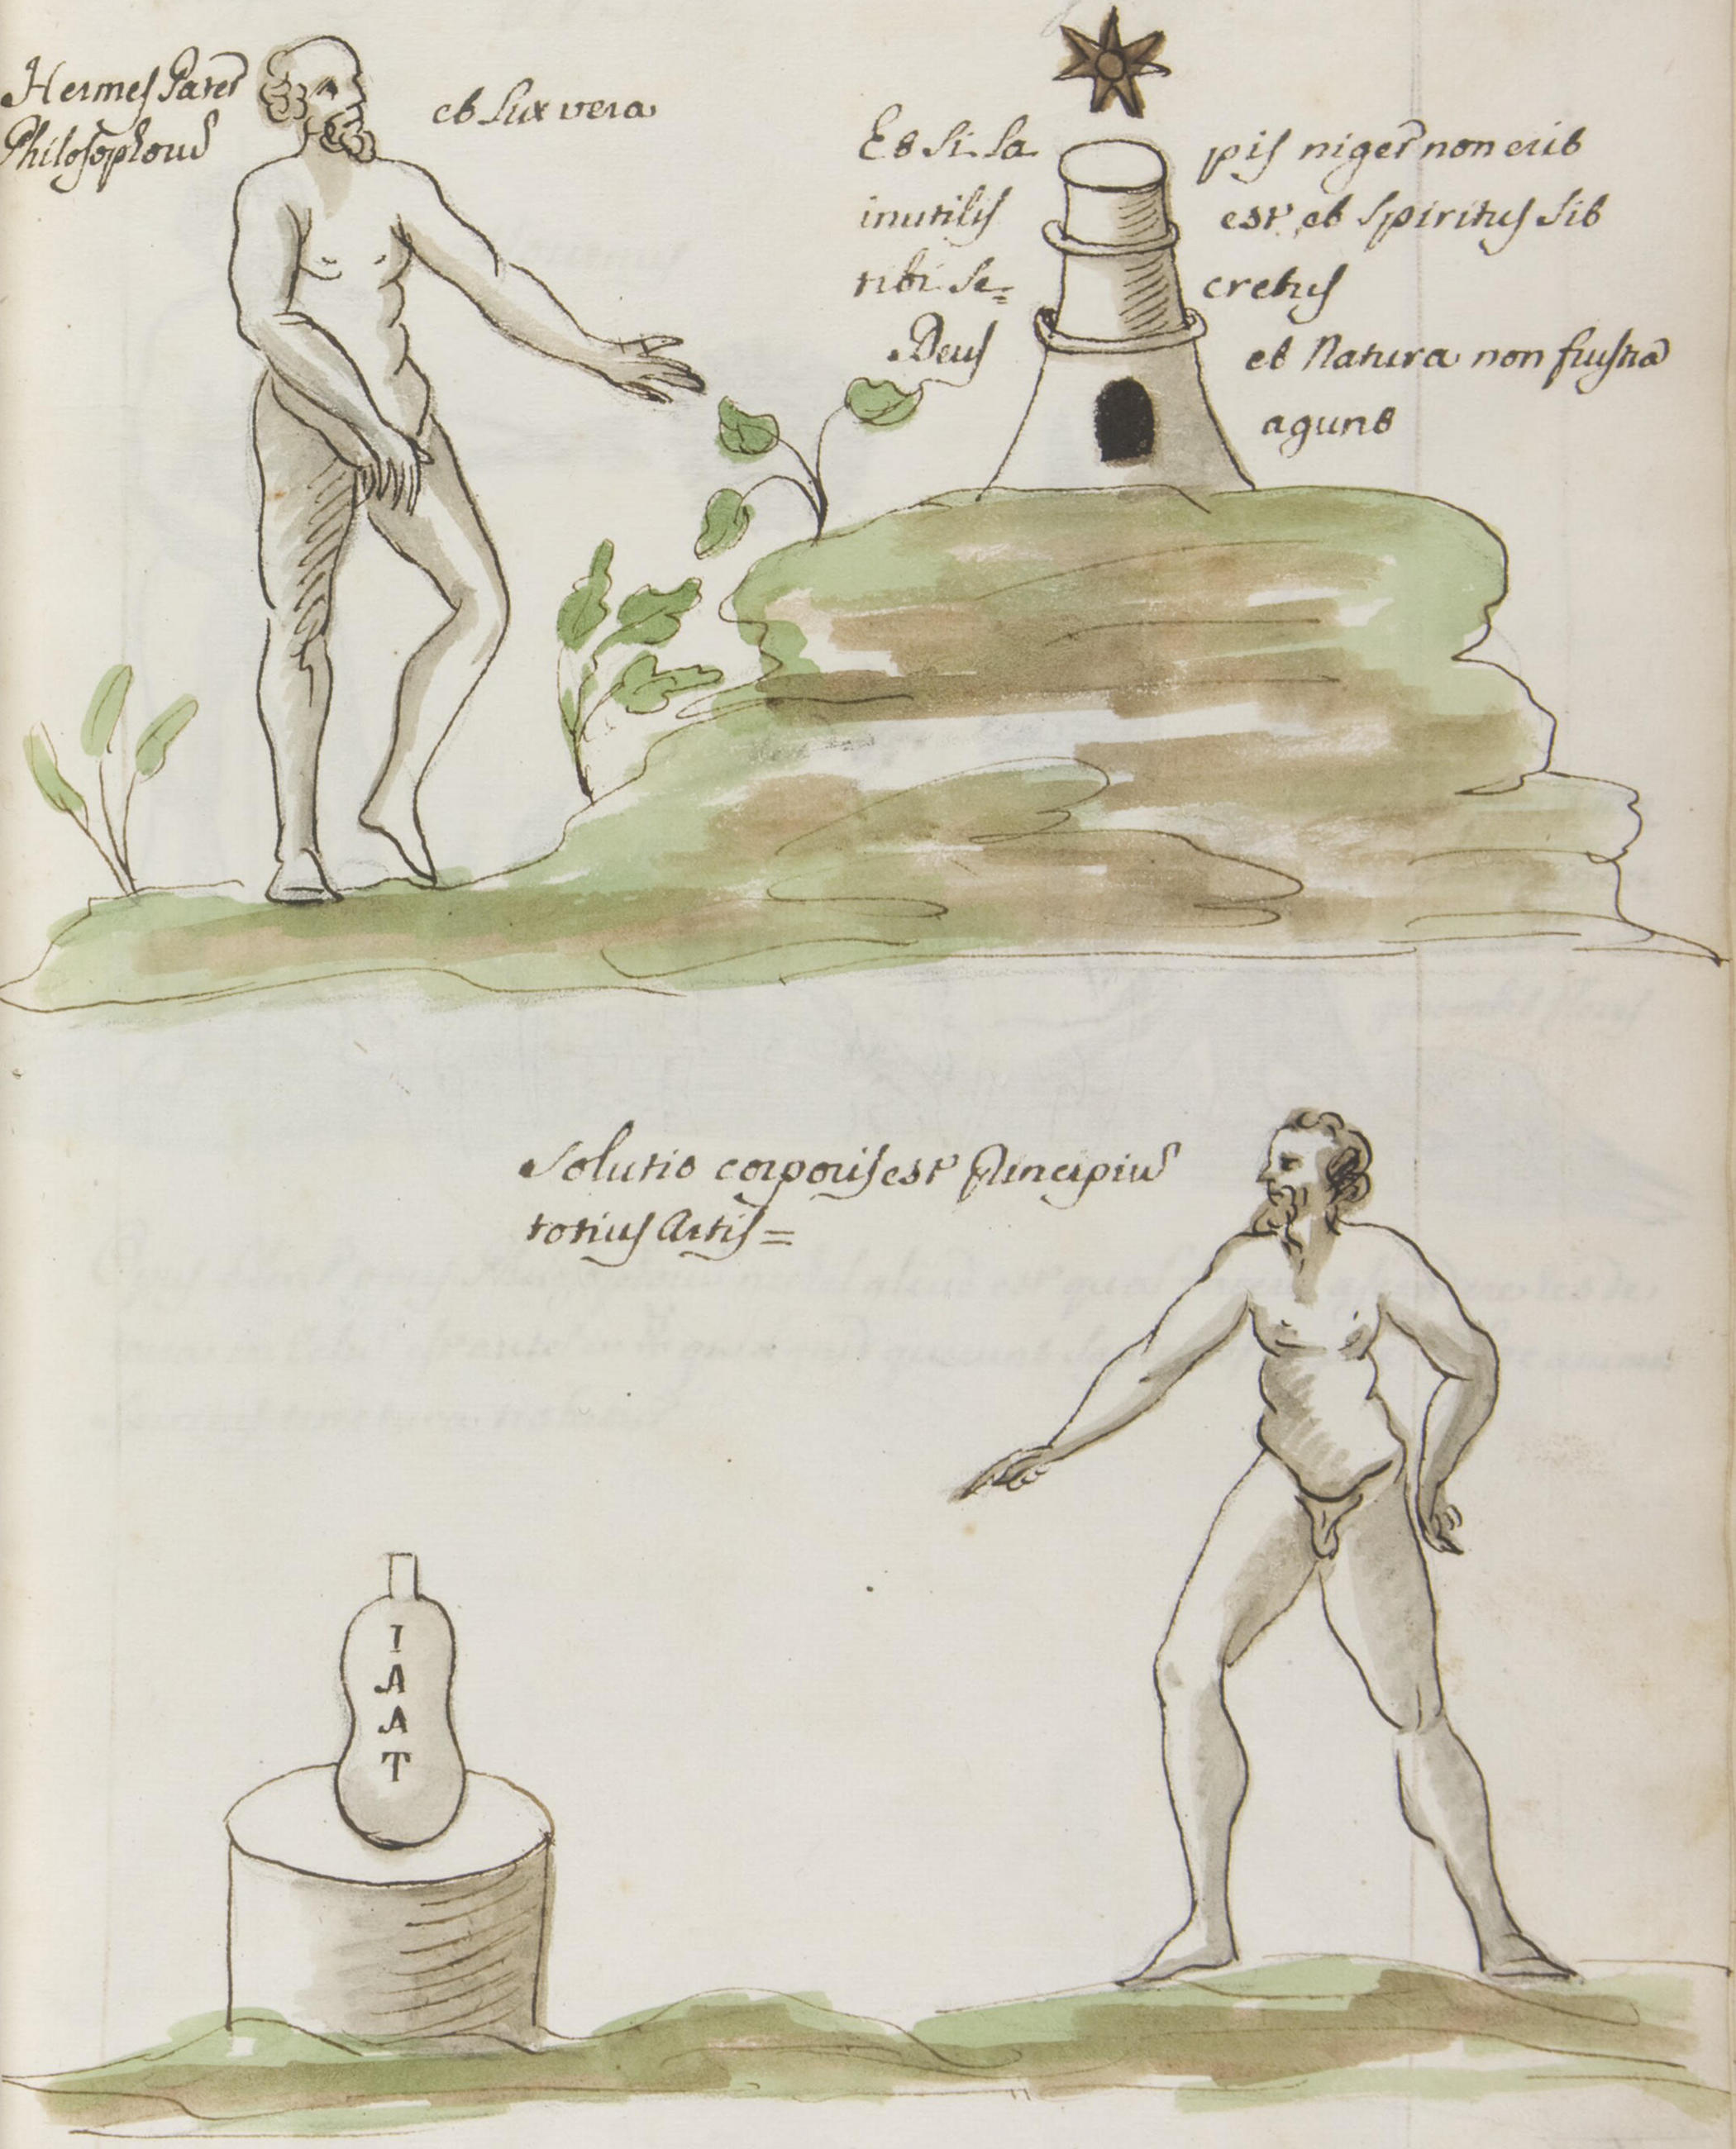 Hermes Pater
Philosophorū
et Lux vera
Et si la pis niger non erit
inutilis est, et spiritus sit
tibi se= cretus
Deus et Natura non frustra
agunt
Solutio corporis est Principiū
totius Artis=
I
A
A
T